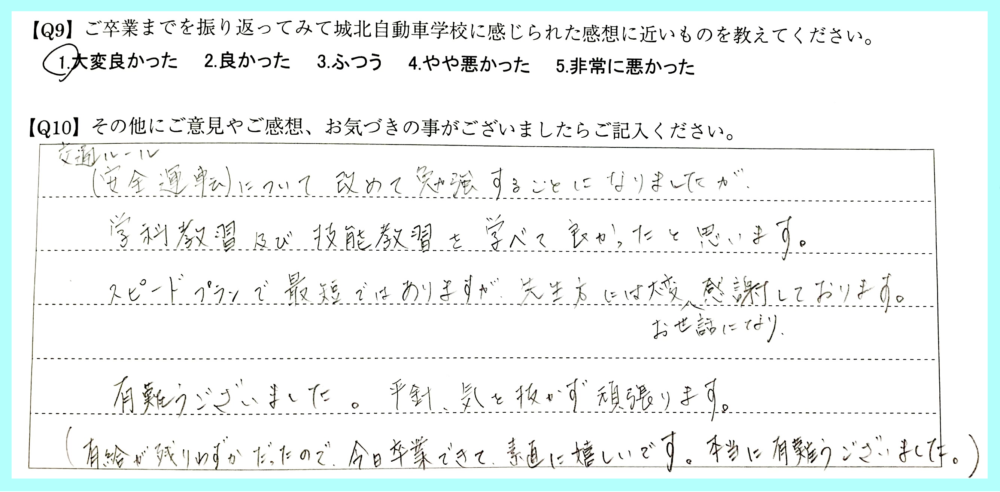 【Q9】ご卒業までを振り返ってみて城北自動車学校に感じられた感想に近いものを教えてください。
1.大変良かった 2.良かった 3.ふつう 4.やや悪かった 5.非常に悪かった
【Q10】その他にご意見やご感想、お気づきの事がございましたらご記入ください。
交通ルール
(安全運転)について改めて勉強することになりましたが、
学科教習及び技能教習を学べて良かったと思います。
スピードプランで最短ではありますが、先生方には大変感謝しております。
お世話になり、
有難うございました。平針、気を抜かず頑張ります。
(有給が残りわずかだったので、今日卒業できて、素直に嬉しいです。本当に有難うございました。)